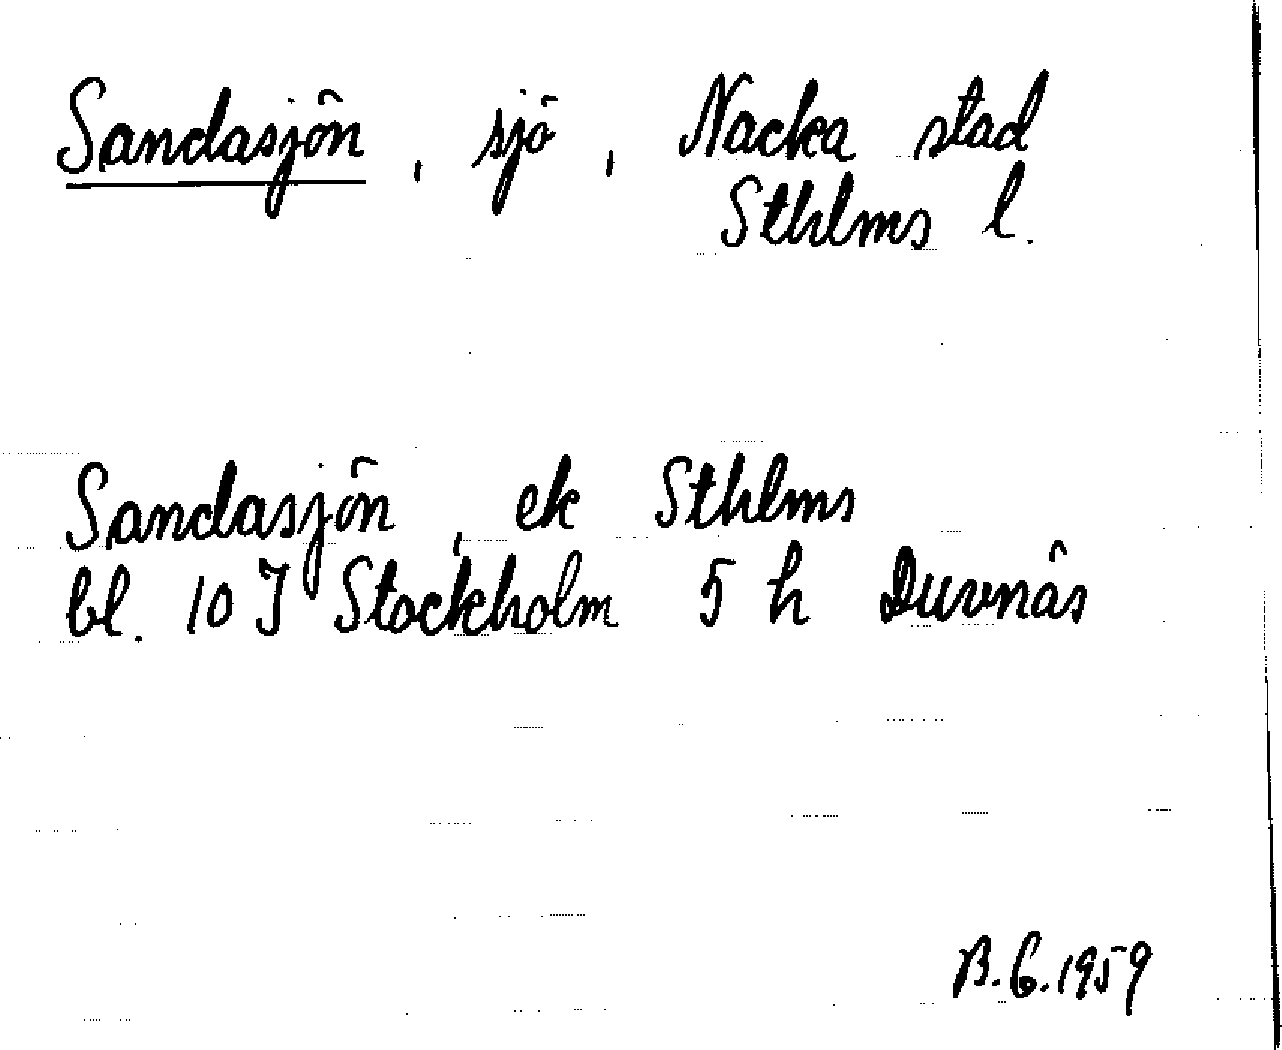 Sandasjön, sjö, Nacka stad
Sthlms l.
Sandasjön, ek Sthlms
bl. 10 I Stockholm 5 h Duvnäs
B.G.1959